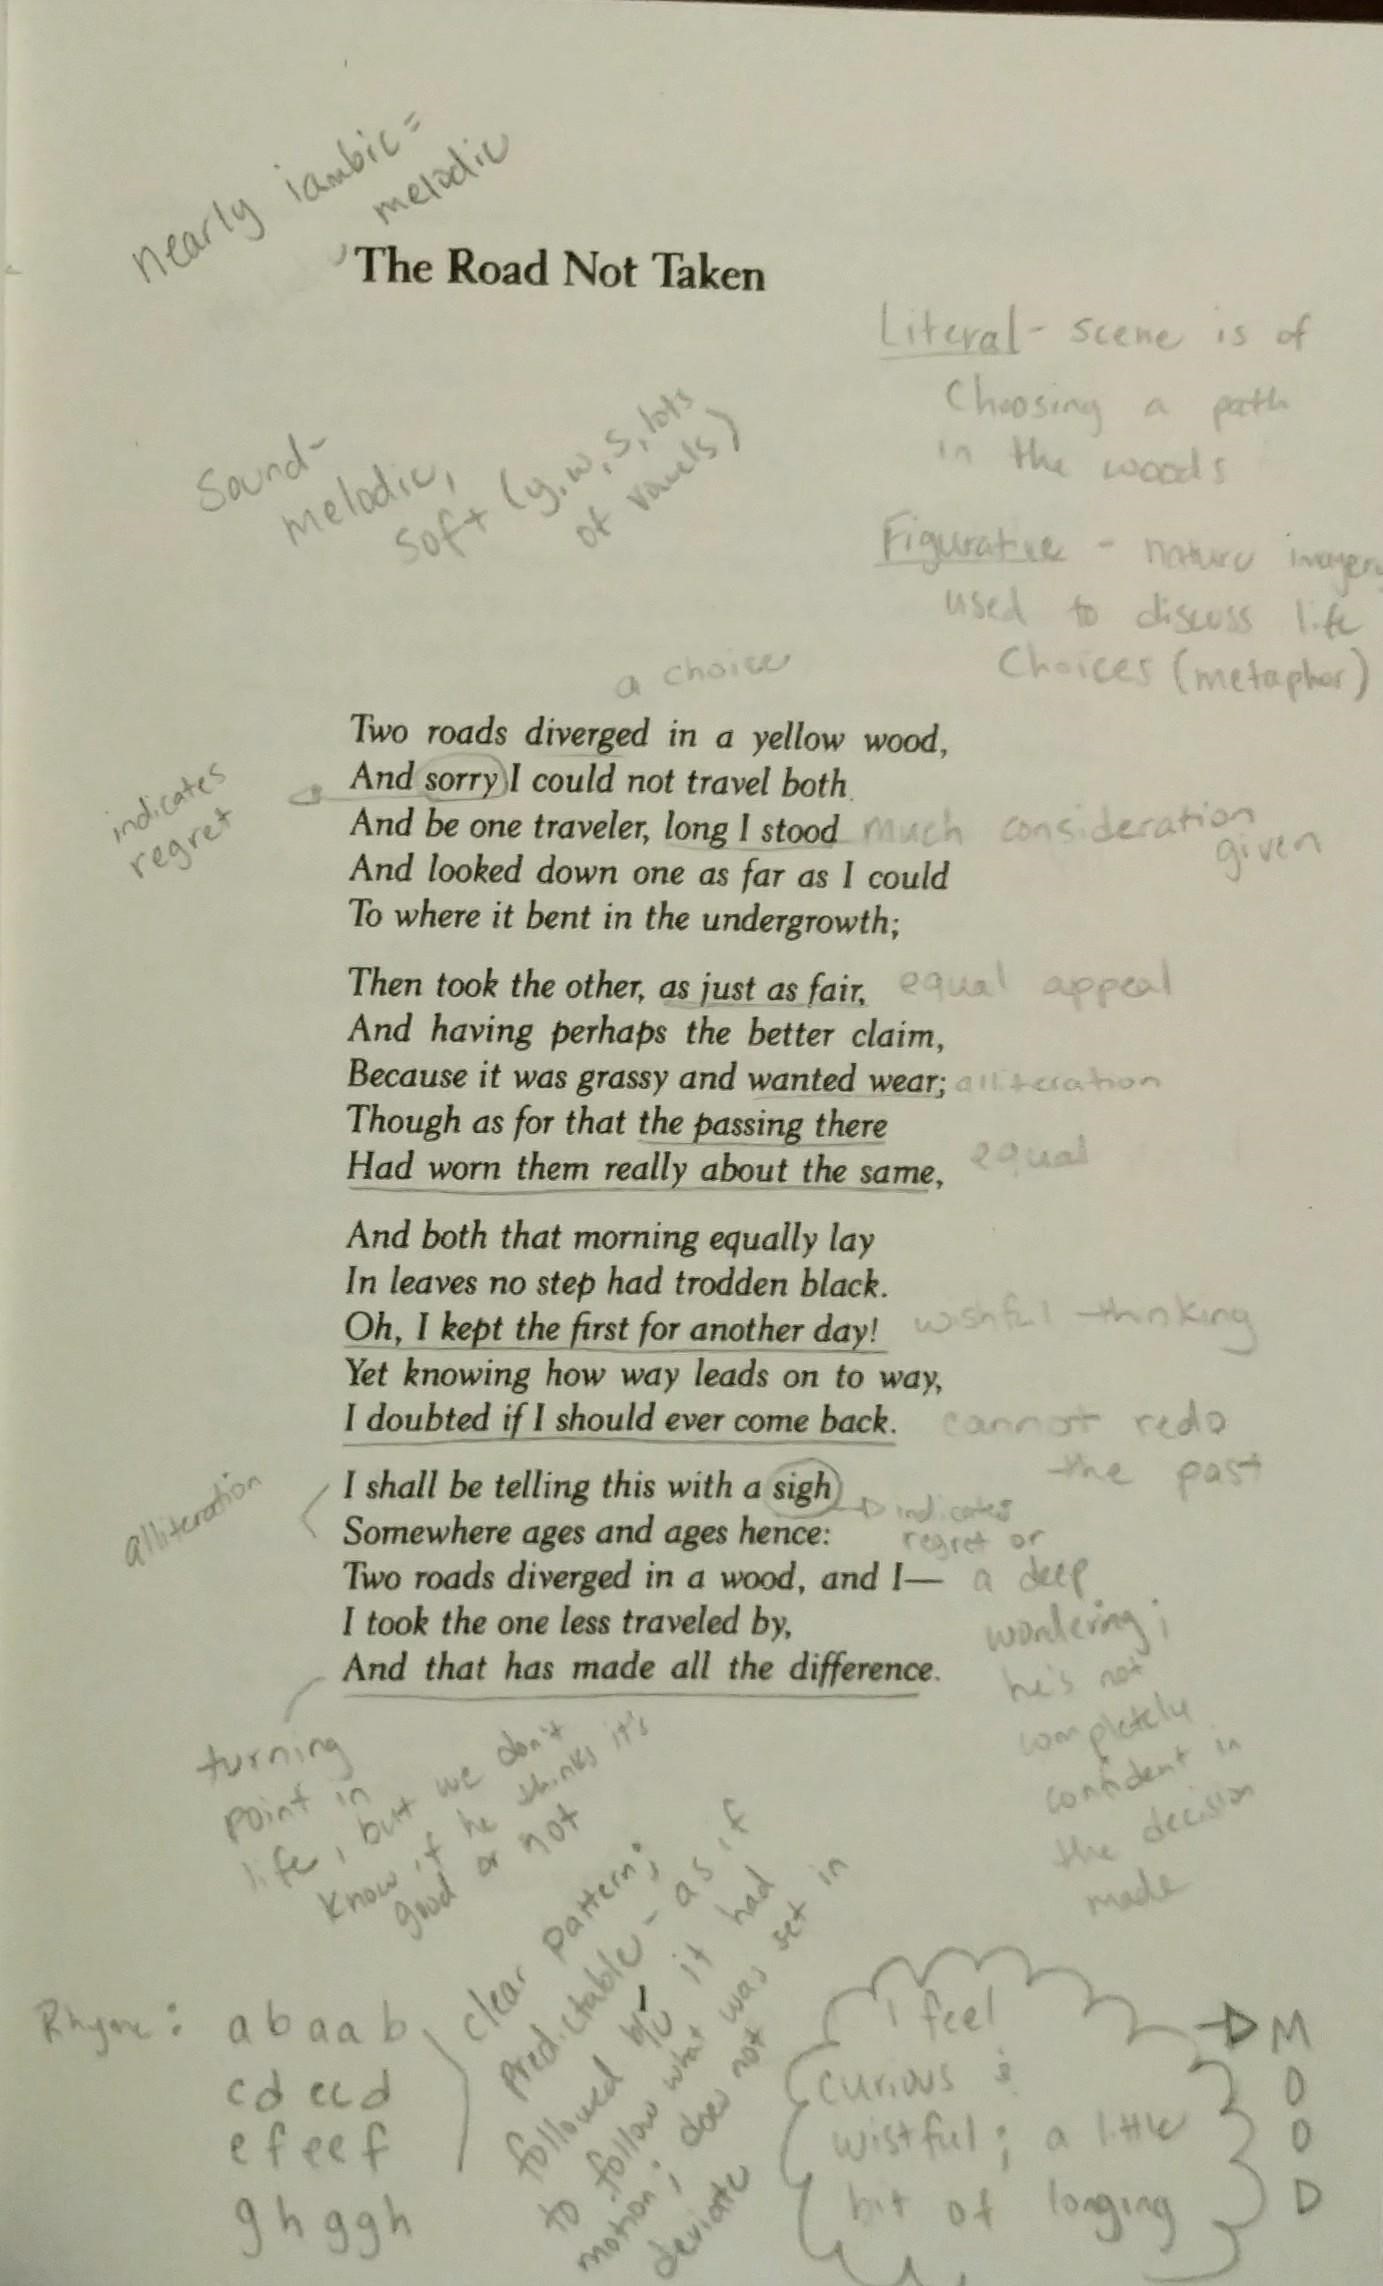 nearly iambic =
melodic
The Road Not Taken
Literal - scene is of
choosing a path
in the woods
Sound -
melodic,
soft (y, w, s, lots
of vowels)
Figurative - nature imagery
used to discuss life
choices (metaphor)
a choice
Two roads diverged in a yellow wood,
And sorry I could not travel both
indicates
regret
And be one traveler, long I stood much consideration
given
And looked down one as far as I could
To where it bent in the undergrowth;
Then took the other, as just as fair, equal appeal
And having perhaps the better claim,
Because it was grassy and wanted wear; alliteration
Though as for that the passing there
equal
Had worn them really about the same,
And both that morning equally lay
In leaves no step had trodden black.
Oh, I kept the first for another day! wishful thinking
Yet knowing how way leads on to way,
I doubted if I should ever come back. cannot redo
the past
alliteration
I shall be telling this with a sigh
indicates
Somewhere ages and ages hence:
regret or
Two roads diverged in a wood, and I— a deep
I took the one less traveled by,
wondering;
And that has made all the difference.
he's not
completely
confident in
the decision
made
turning
point in
life, but we don't
know if he thinks it's
good or not
Rhyme: abaab
cdccd
efeef
ghggh
clear pattern;
predictable - as if
followed b/c it had
to follow what was set in
motion; does not
deviate
I feel
curious &
wistful; a little
bit of longing
MOOD